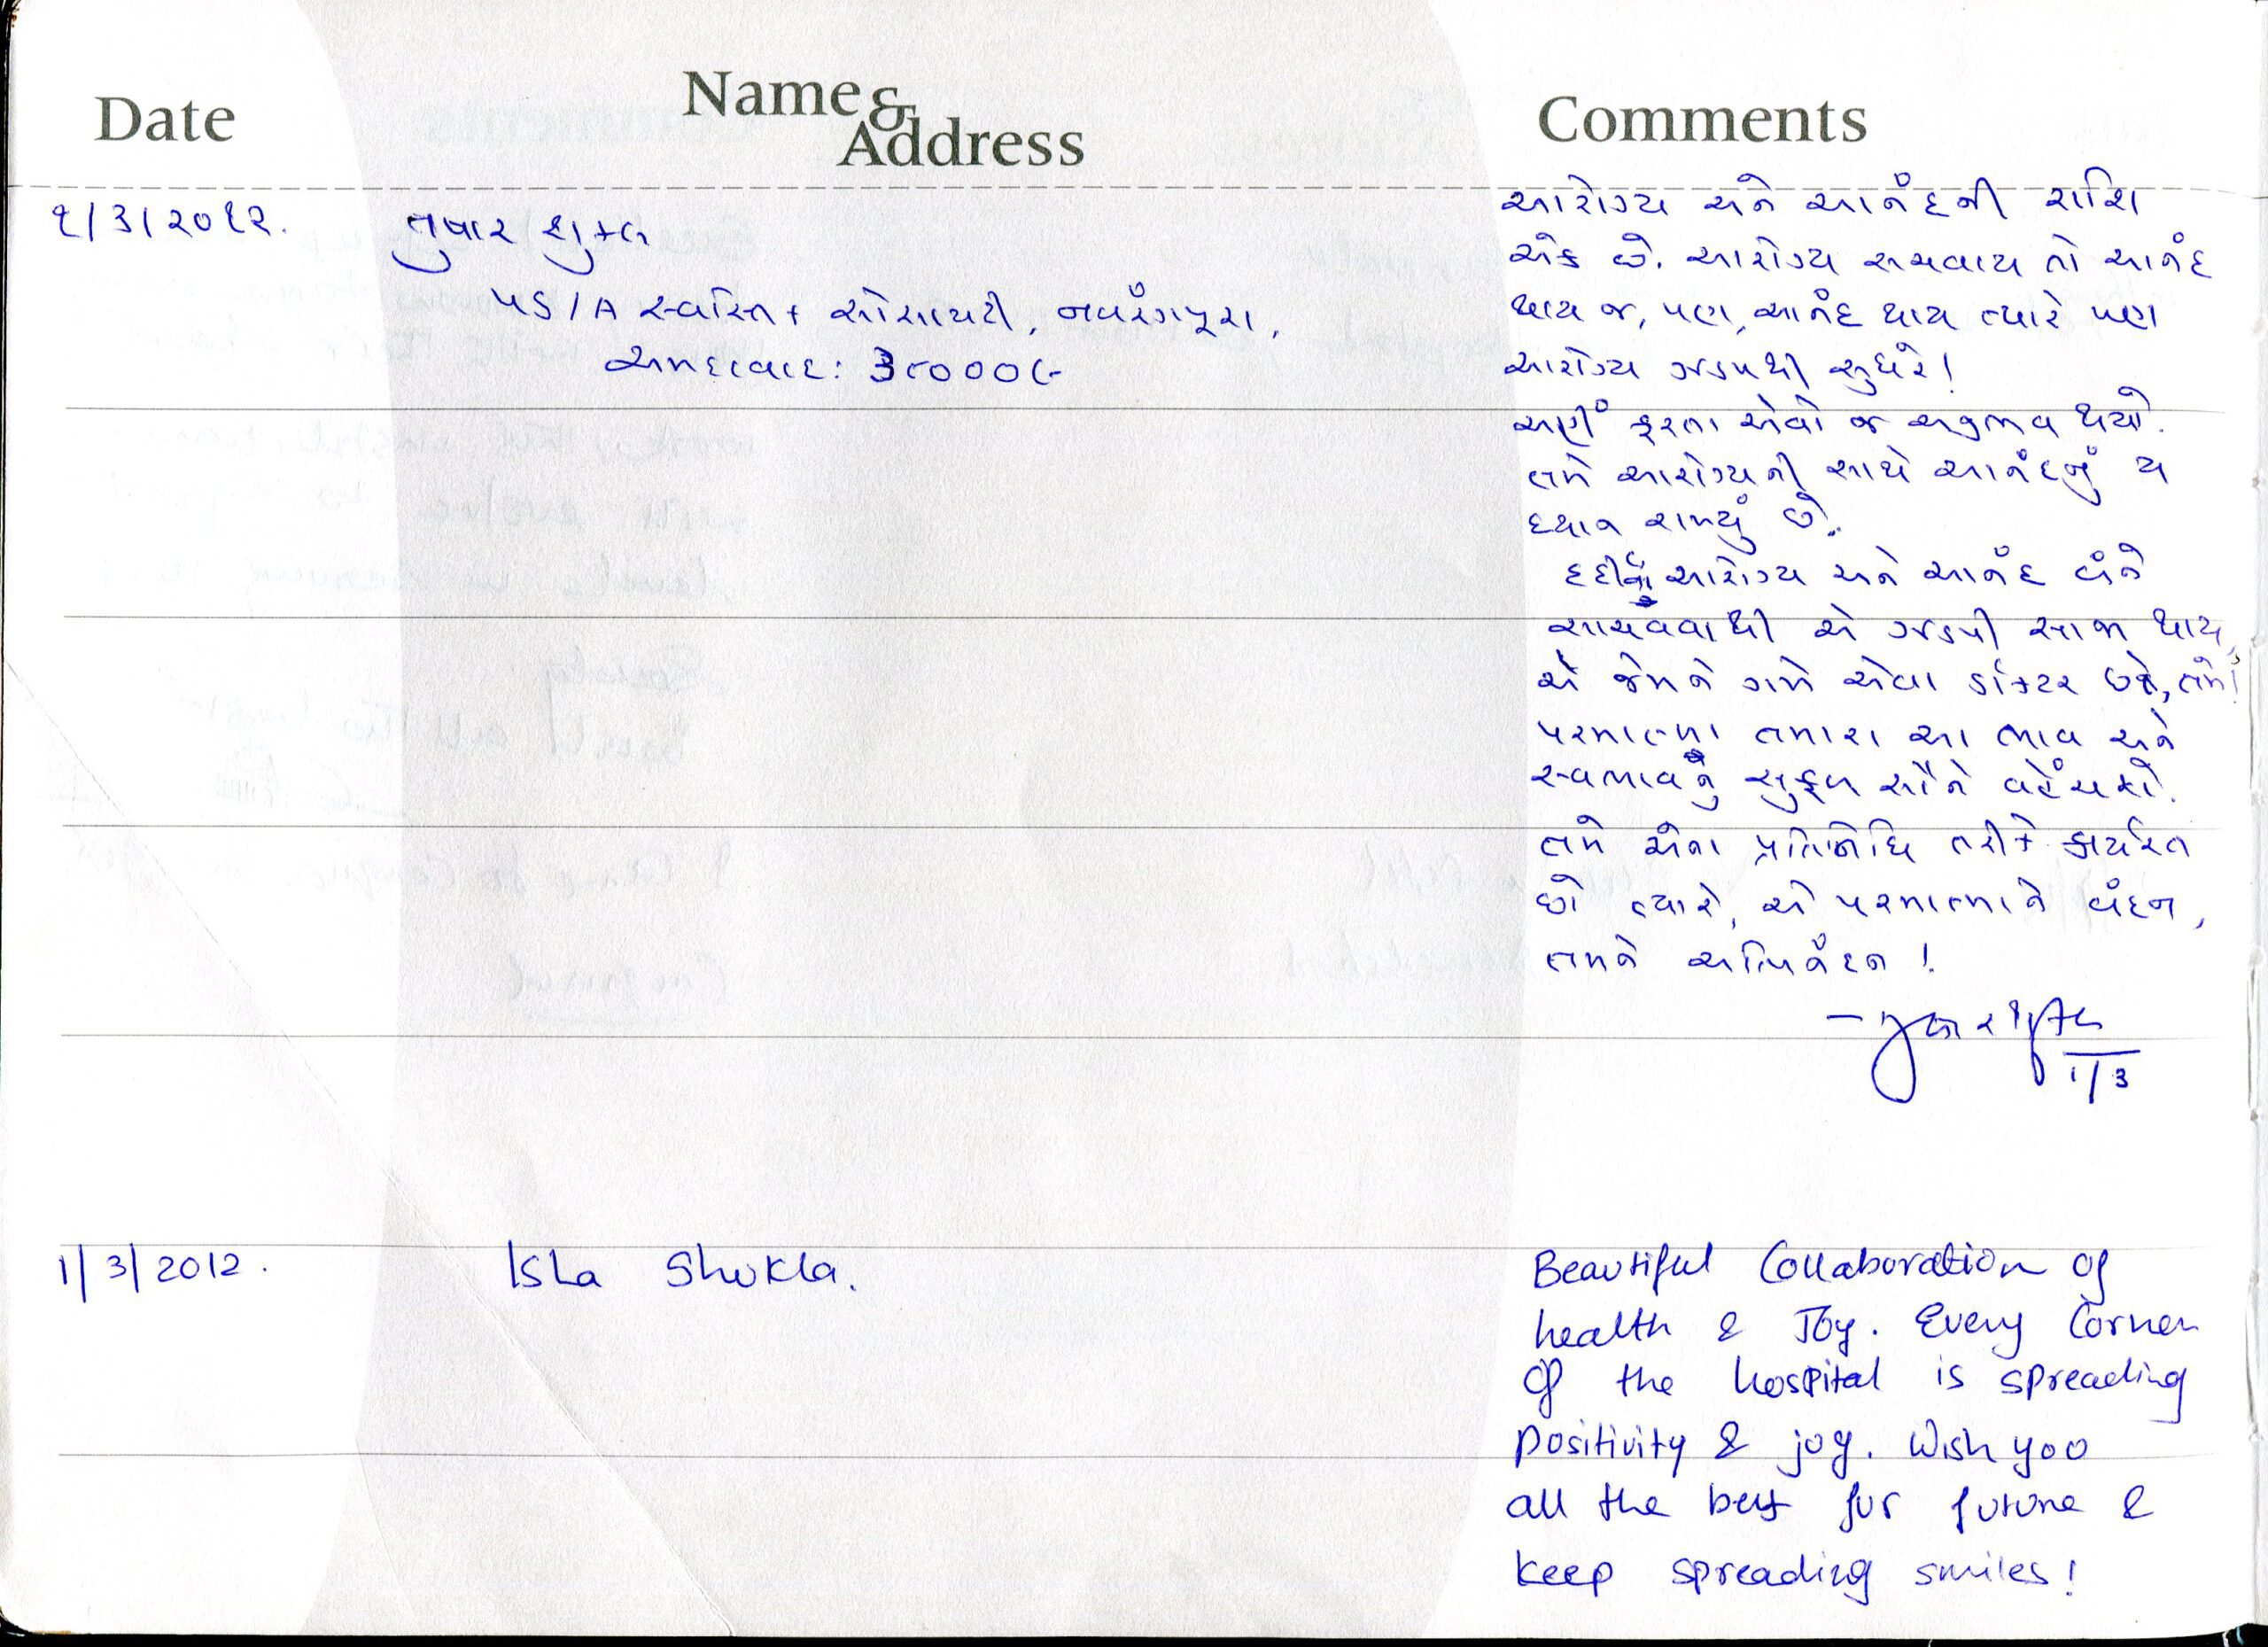 Date
Name &
Address
Comments
૧/૩/૨૦૧૨.
તુષાર શુક્લ
૫ડ/A સ્વસ્તિક સોસાયટી, નવરંગપુરા,
અમદાવાદ: ૩૮૦૦૦૯
આરોગ્ય અને આનંદની રાશિ
એક છે. આરોગ્ય સચવાય તો આનંદ
થાય જ, પણ, આનંદ થાય ત્યારે પણ
આરોગ્ય ઝડપથી સુધરે!
અહીં ફરતા એવો જ અનુભવ થયો.
તમે આરોગ્યની સાથે આનંદનું ય
ધ્યાન રાખ્યું છે.
દર્દીનું આરોગ્ય અને આનંદ બંને
સાચવવાથી એ ઝડપી સાજા થાય,
એ જેમને ગમે એવા ડૉક્ટર છો, તમે!
પરમાત્મા તમારા આ ભાવ અને
સ્વભાવનું સુફળ સૌને વહેંચશે.
તમે એના પ્રતિનિધિ તરીકે કાર્યરત
છો ત્યારે, એ પરમાત્માને વંદન,
તમને અભિનંદન!
- તુષાર શુક્લ
1/3
1/3/2012.
Isha Shukla.
Beautiful Collaboration of
health & Joy. Every Corner
of the hospital is spreading
positivity & joy. Wish you
all the best for future &
keep spreading smiles!